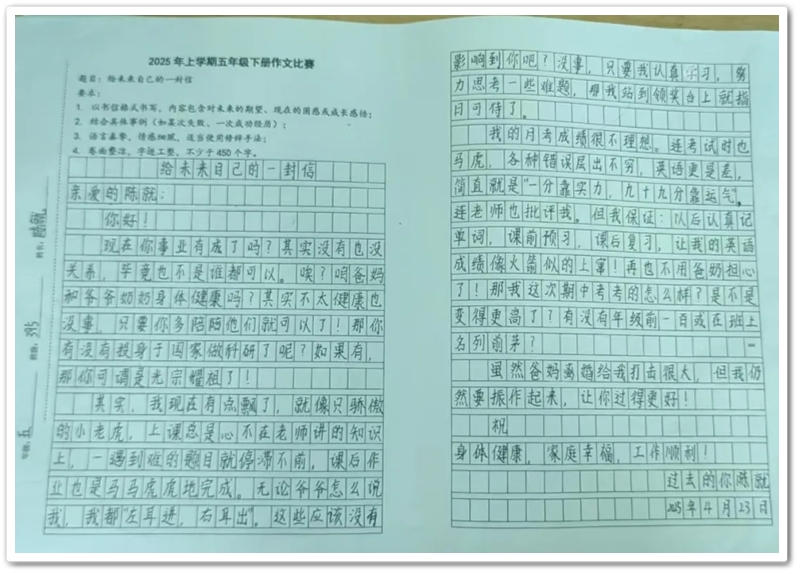 2025年上学期五年级下册作文比赛
题目：给未来自己的一封信
要求：
1. 以书信格式书写，内容包含对未来的期望、现在的困惑或成长感悟；
2. 结合具体事例（如某次失败、一次成功经历）；
3. 语言真挚，情感细腻，适当使用修辞手法；
4. 卷面整洁，字迹工整，不少于450个字。
给未来自己的一封信
亲爱的陈就：
你好！
现在你事业有成了吗？其实没有也没
关系，毕竟也不是谁都可以。唉？咱爸妈
和爷爷奶奶身体健康吗？其实不太健康也
没事，只要你多陪陪他们就可以了！那你
有没有投身于国家做科研了呢？如果有，
那你可谓是光宗耀祖了！
其实，我现在有点飘了，就像只骄傲
的小老虎，上课总是心不在老师讲的知识
上，一遇到难的题目就停滞不前，课后作
业也是马马虎虎地完成。无论爷爷怎么说
我，我都“左耳进，右耳出”。这些应该没有
影响到你吧？没事，只要我认真学习，努
力思考一些难题，那我站到领奖台上就指
日可待了。
我的月考成绩很不理想。连考试时也
马虎，各种错误层出不穷，英语更是差，
简直就是“一分靠实力，九十九分靠运气”。
连老师也批评我。但我保证：以后认真记
单词，课前预习，课后复习，让我的英语
成绩像火箭似的上窜！再也不用爸奶担心
了！那我这次期中考考的怎么样？是不是
变得更高了？有没有年级前一百或在班上
名列前茅？
虽然爸妈离婚给我打击很大，但我仍
然要振作起来，让你过得更好！
祝
身体健康，家庭幸福，工作顺利！
过去的你陈就
2025年4月23日
姓名：陈就
班级：315
年级：五